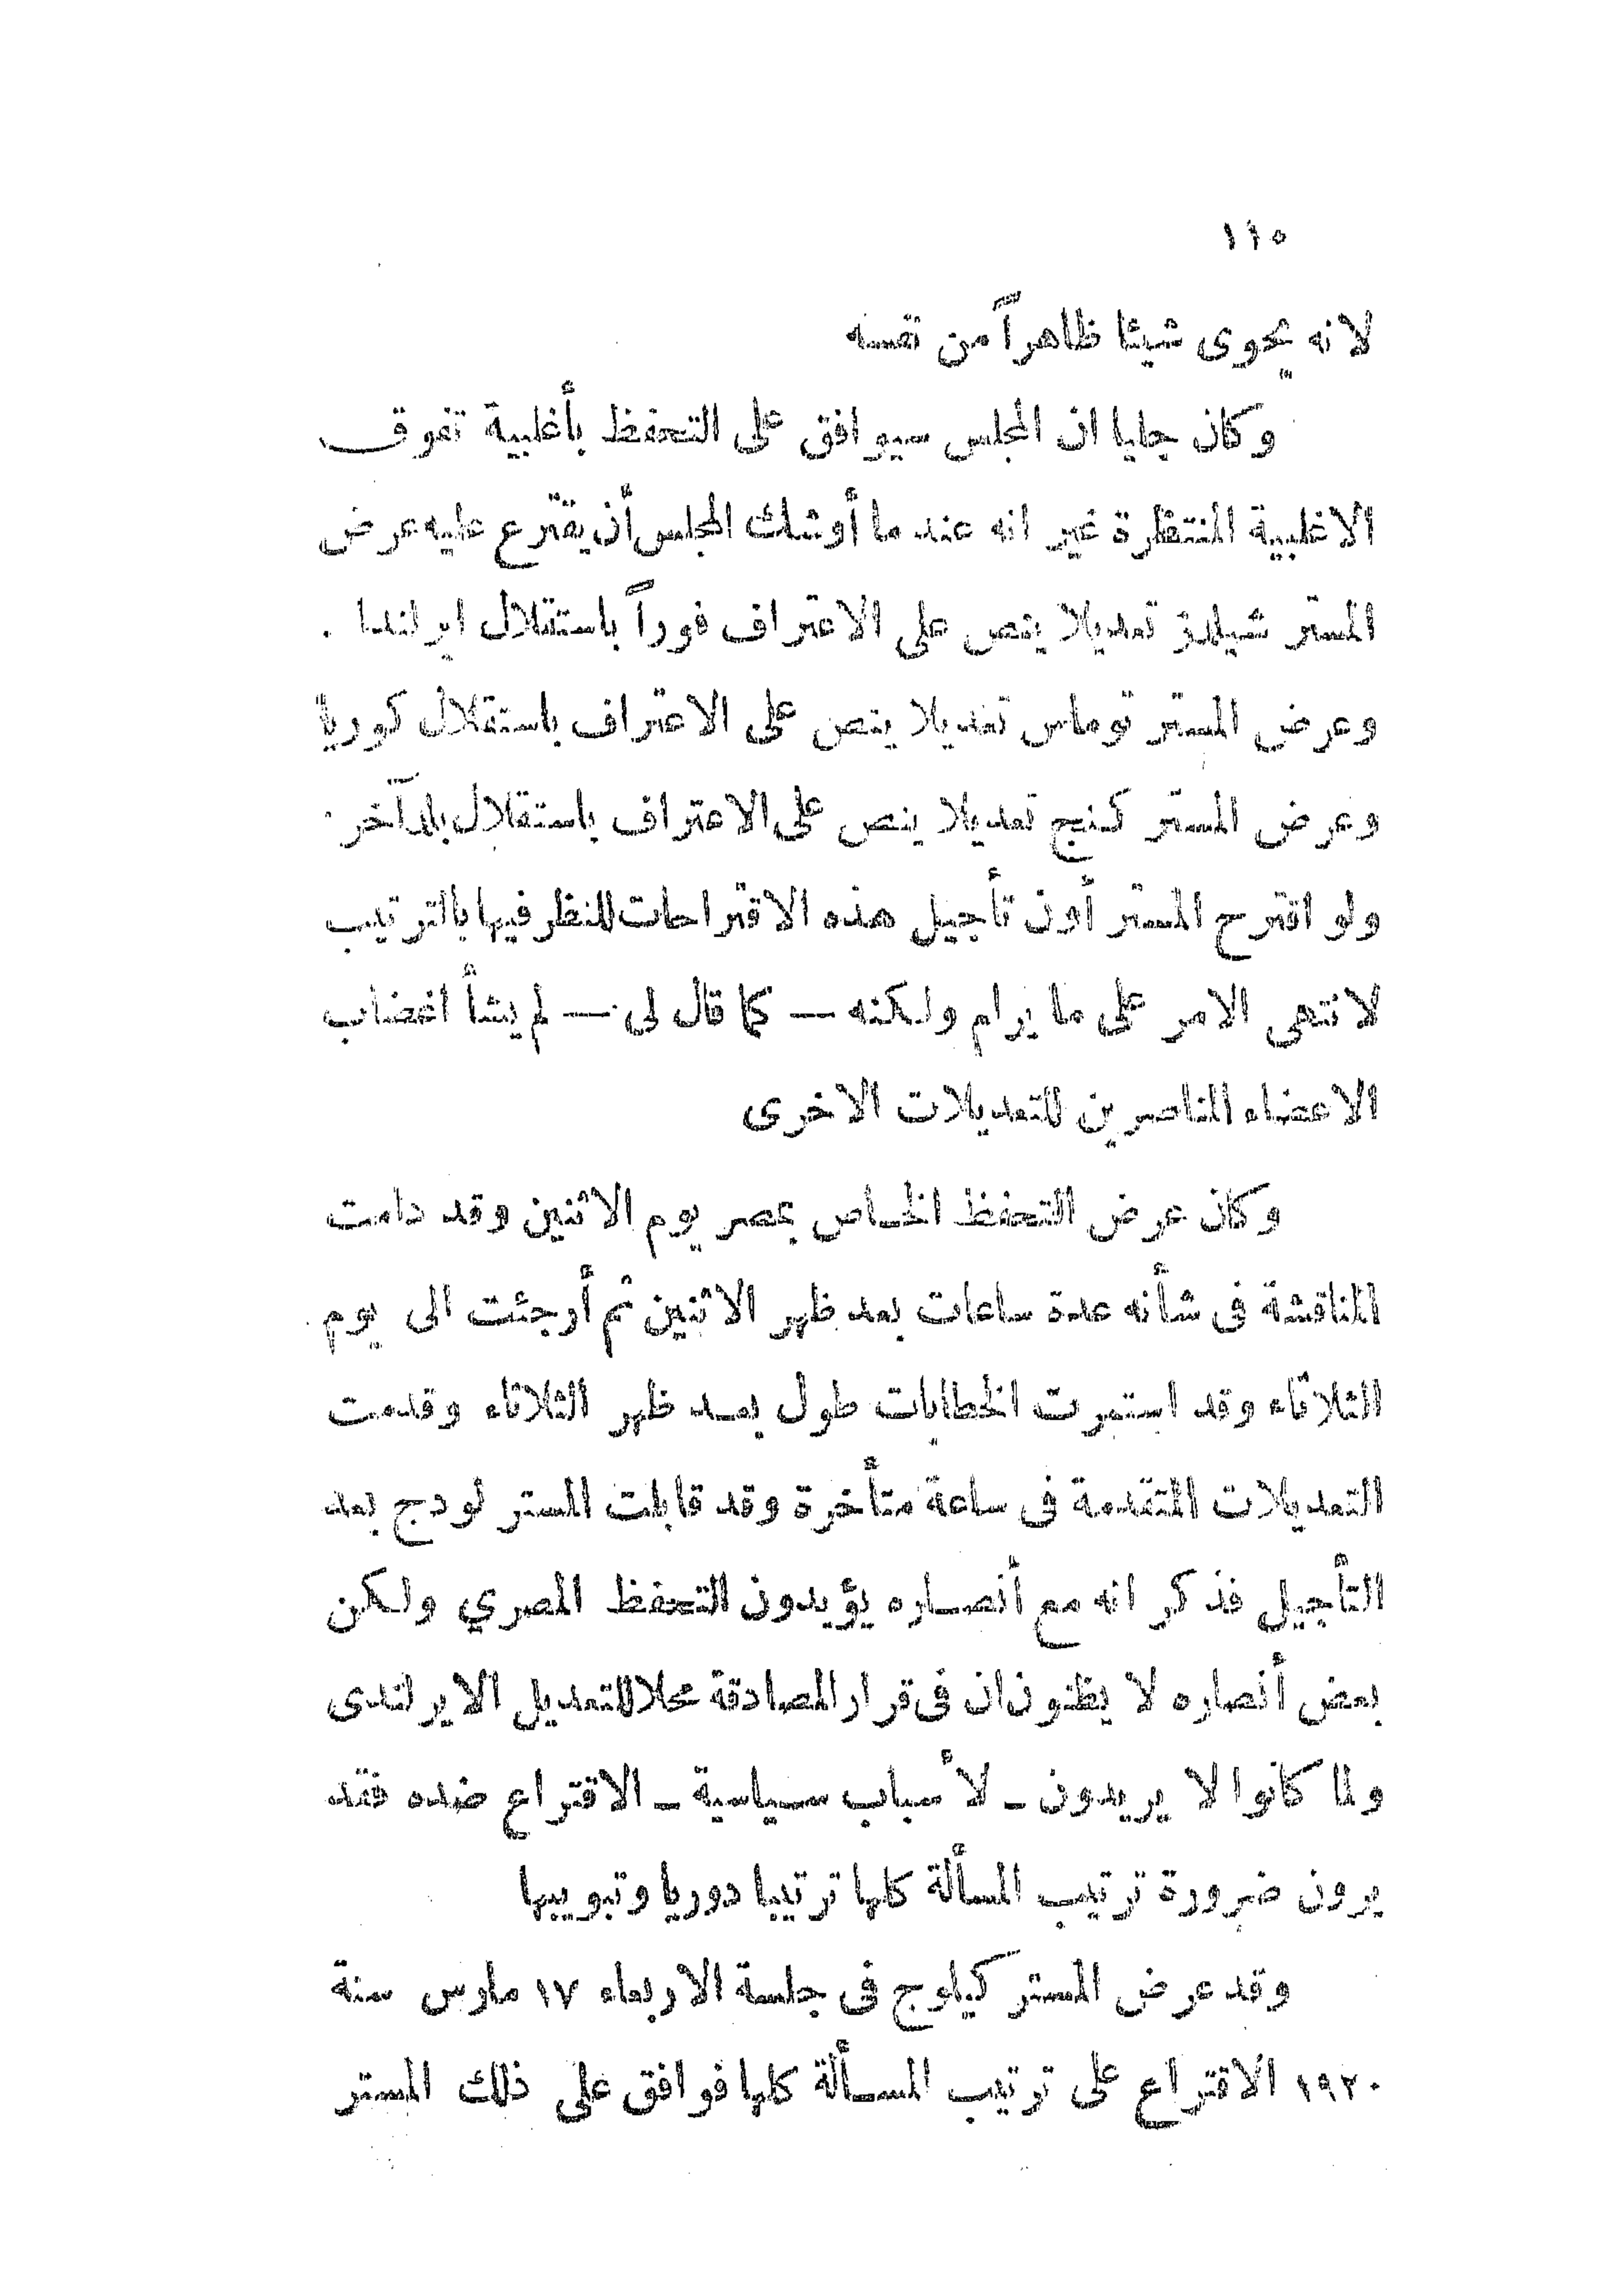 ١١٥
لانه يحوى شيئا ظاهراً من نفسه
وكان جليا ان المجلس سيوافق على التحفظ بأغلبية تفوق
الاغلبية المنتظرة غير انه عند ما أوشك المجلس أن يقترع عليه عرض
المستر شيلدز تعديلا ينص على الاعتراف فوراً باستقلال ايرلندا .
وعرض المستر توماس تعديلا ينص على الاعتراف باستقلال كوريا
وعرض المستر كنج تعديلا ينص على الاعتراف باستقلال بلد آخر
ولو اقترح المستر أون تأجيل هذه الاقتراحات للنظر فيها بالترتيب
لانتهى الامر على ما يرام ولكنه — كما قال لى — لم يشأ اغضاب
الاعضاء المناصرين للتعديلات الاخرى
وكان عرض التحفظ الخاص بمصر يوم الاثنين وقد دامت
المناقشة فى شأنه عدة ساعات بعد ظهر الاثنين ثم أرجئت الى يوم
الثلاثاء وقد استمرت الخطابات طول بعد ظهر الثلاثاء وقدمت
التعديلات المتقدمة فى ساعة متأخرة وقد قابلت المستر لودج بعد
التأجيل فذكر انه مع أنصاره يؤيدون التحفظ المصري ولكن
بعض أنصاره لا يظنون ان فى قرار المصادقة محلا للتعديل الايرلندى
ولما كانوا لا يريدون ـ لأسباب سياسية ـ الاقتراع ضده فقد
يرون ضرورة ترتيب المسألة كلها ترتيبا دوريا وتبويبها
وقد عرض المستر كيلوج فى جلسة الاربعاء ١٧ مارس سنة
١٩٢٠ الاقتراع على ترتيب المسألة كلها فوافق على ذلك المستر